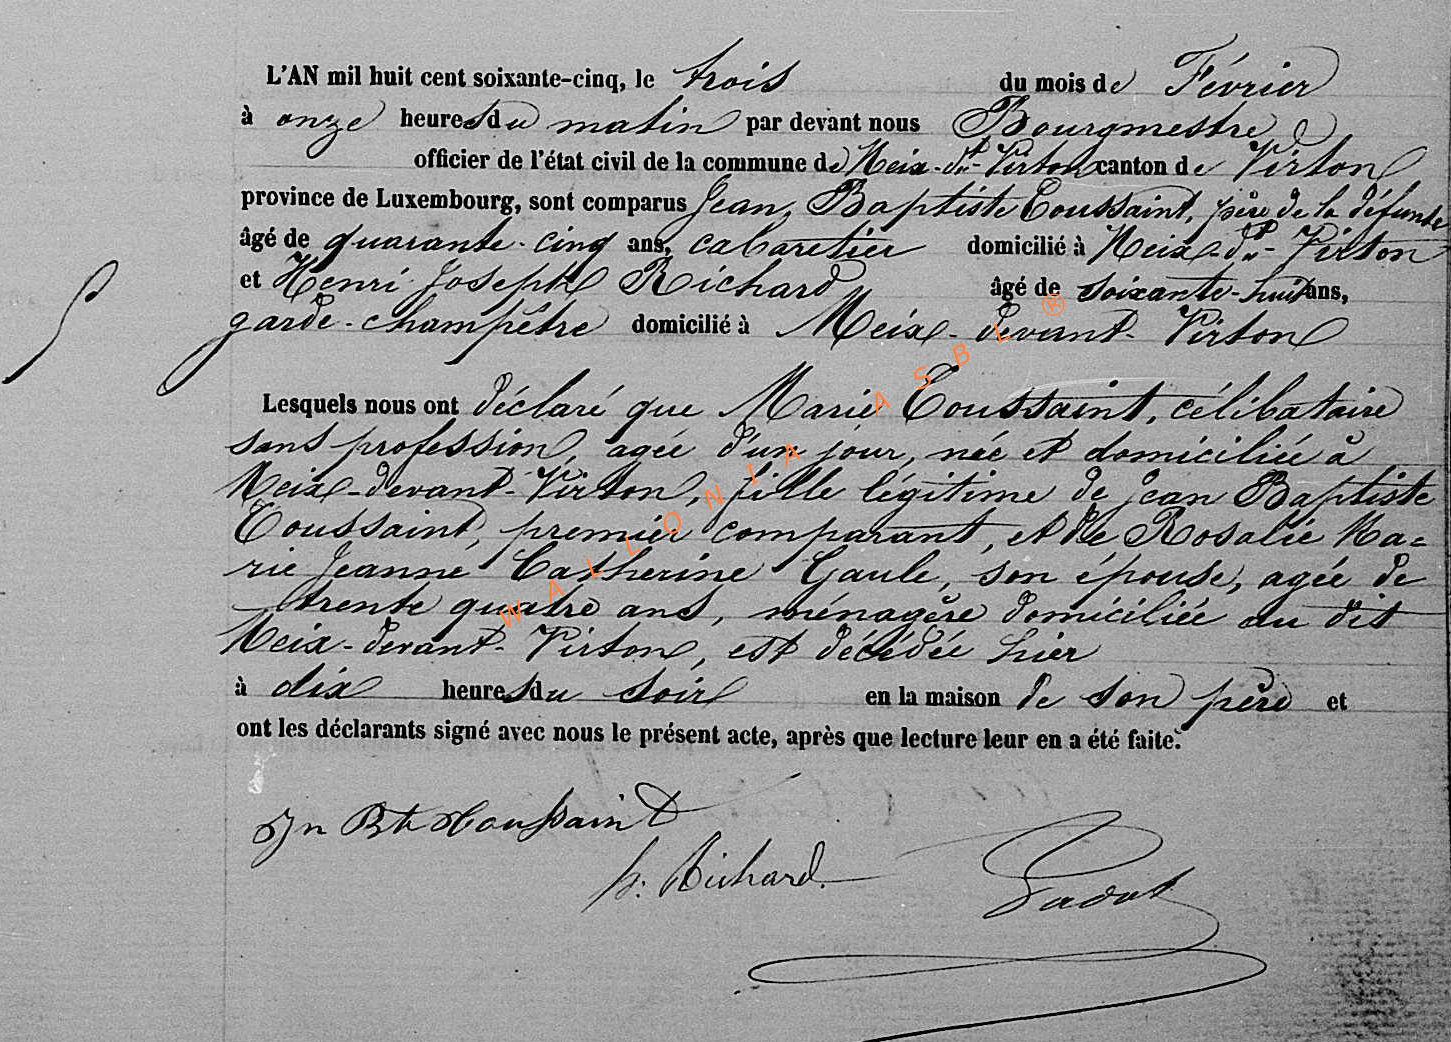 L'AN mil huit cent soixante-cinq, le trois du mois de Février
à onze heures du matin par devant nous Bourgmestre
officier de l'état civil de la commune de Meix-dt-Virton canton de Virton
province de Luxembourg, sont comparus Jean, Baptiste Toussaint, père de la défunte
âgé de quarante-cinq ans, cabaretier domicilié à Meix-dt-Virton
et Henri Joseph Richard âgé de soixante-huit ans,
garde-champêtre domicilié à Meix-devant-Virton
Lesquels nous ont déclaré que Marie Toussaint, célibataire
sans profession, agée d'un jour, née et domiciliée à
Meix-devant-Virton, fille légitime de Jean Baptiste
Toussaint, premier comparant, et de Rosalie Ma=
rie Jeanne Catherine Gaule, son épouse, agée de
trente quatre ans, ménagère domiciliée au dit
Meix-devant-Virton, est décédée hier
à dix heures du soir en la maison de son père et
ont les déclarants signé avec nous le présent acte, après que lecture leur en a été faite.
Jn Bte Toussaint
h. Richard.
WALLONIA ASBL ®